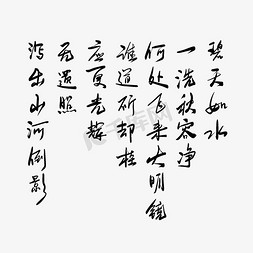 碧天如水
一洗秋容净
何处飞来大明镜
谁道斫却桂
应更光辉
无遗照
泻出山河倒影